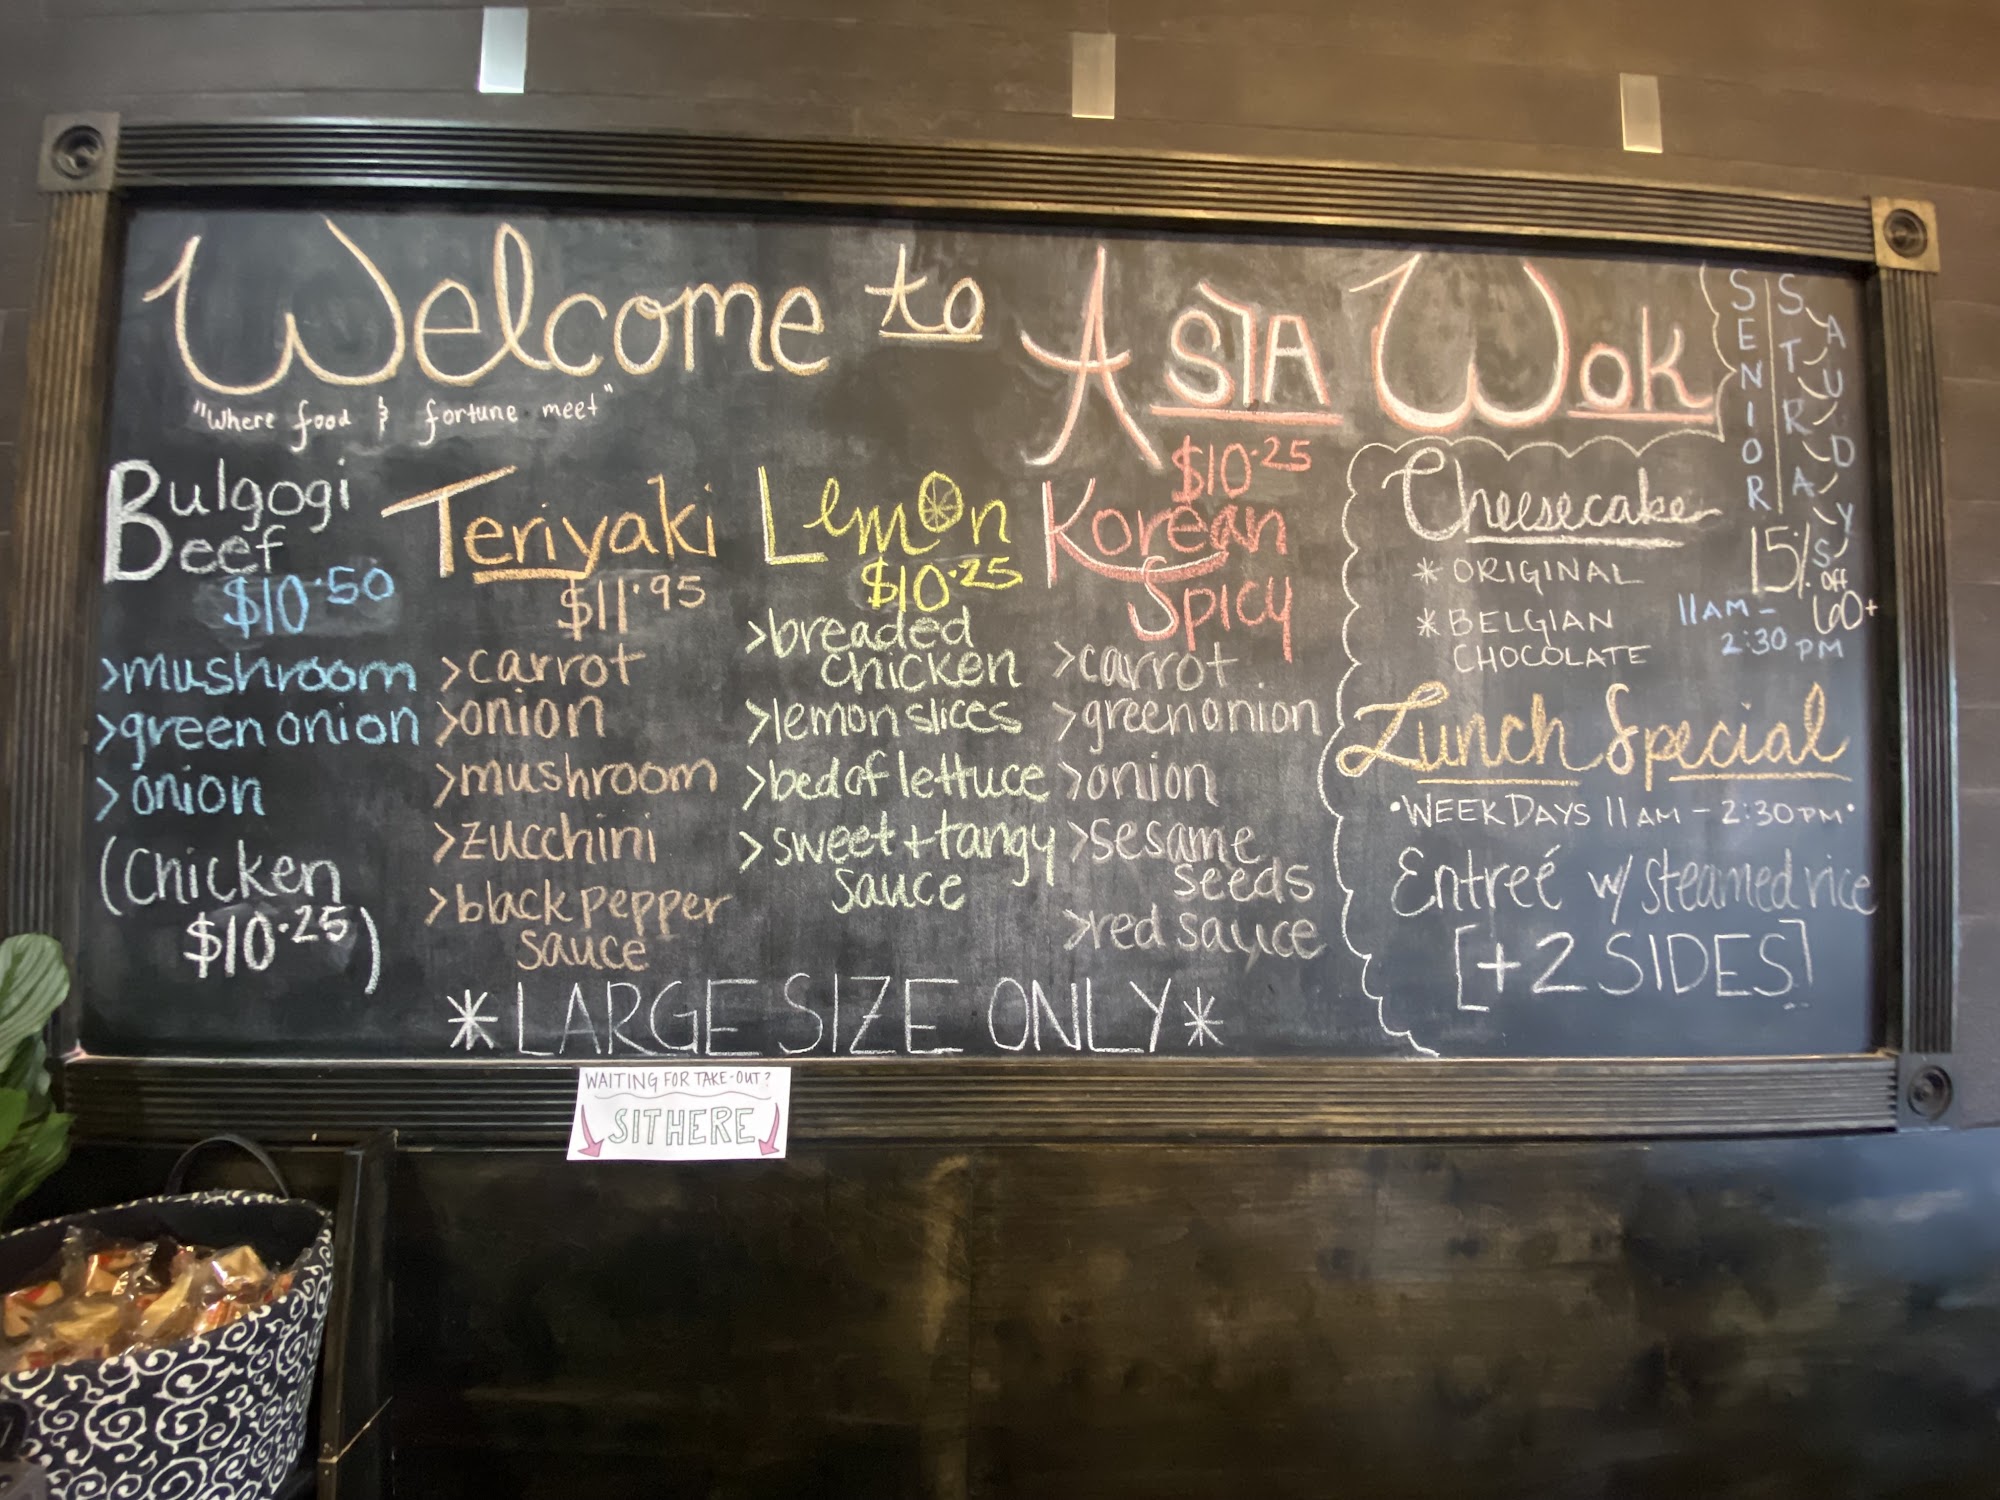 Welcome to ASIA WOK
"Where food & fortune meet"
Bulgogi
Beef
$10.50
>mushroom
>green onion
>onion
(Chicken
$10.25)
Teriyaki
$11.95
>carrot
>onion
>mushroom
>zucchini
>black pepper
sauce
Lemon
$10.25
>breaded
chicken
>lemon slices
>bed of lettuce
>sweet + tangy
sauce
$10.25
Korean
Spicy
>carrot
>green onion
>onion
>sesame
seeds
>red sauce
*LARGE SIZE ONLY*
Cheesecake
* ORIGINAL
* BELGIAN
CHOCOLATE
SENIOR
SATURDAYS
15% OFF
60+
11AM -
2:30 PM
Lunch Special
• WEEKDAYS 11AM - 2:30PM •
Entreé w/ steamed rice
[+2 SIDES]
WAITING FOR TAKE-OUT?
SIT HERE